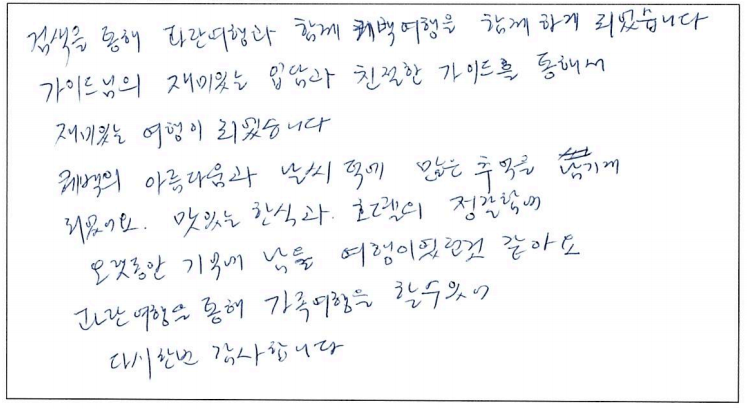 검색을 통해 파란여행과 함께 퀘백여행을 함께 하게 되었습니다
가이드님의 재미있는 입담과 친절한 가이드를 통해서
재미있는 여행이 되었습니다
퀘백의 아름다움과 날씨 덕에 많은 추억을 남기게
되었어요. 맛있는 한식과 호텔의 정갈함에
오랫동안 기억에 남을 여행이었던것 같아요
파란여행을 통해 가족여행을 할수있어
다시한번 감사합니다